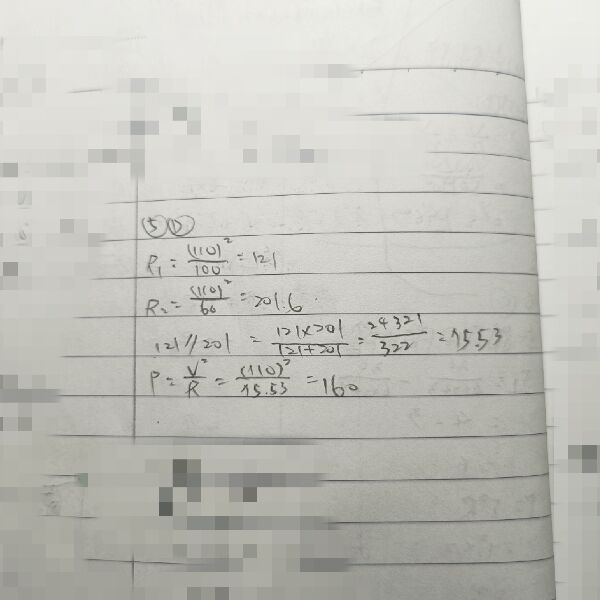 ⑤ Ⓓ
R₁ = (110)² / 100 = 121
R₂ = (110)² / 60 = 201.6
121 // 201 = 121×201 / 121+201 = 24321 / 322 = 75.53
P = V² / R = (110)² / 75.53 = 160